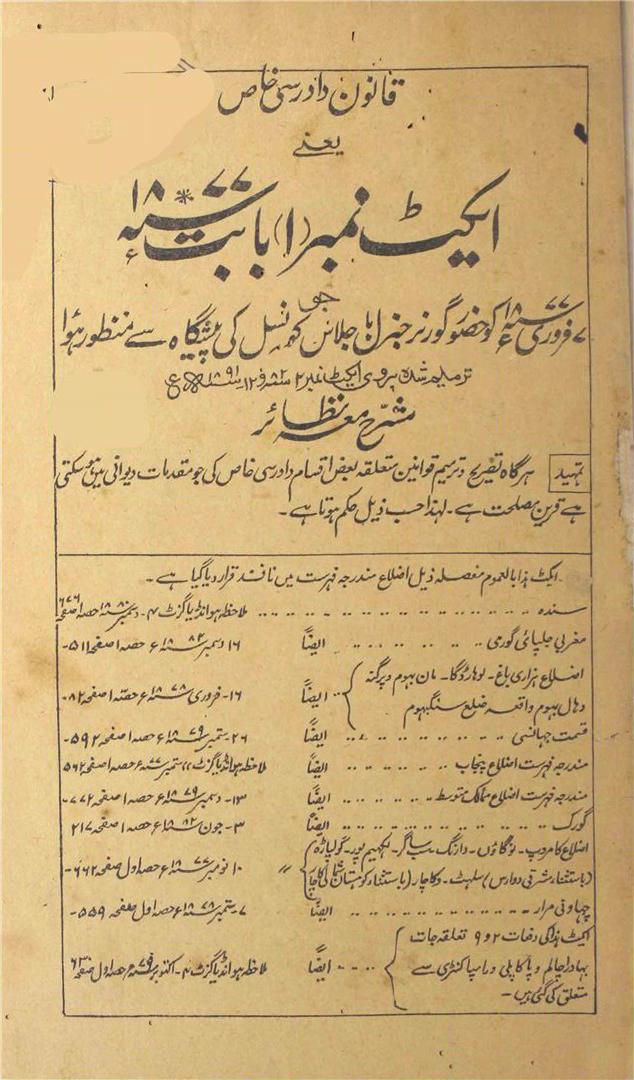 قانون دادرسی خاص
یعنے
ایکٹ نمبر (۱) بابت ۱۸۷۷ء *
جو
۷ فروری ۱۸۷۷ء کو حضور گورنر جنرل باجلاس کونسل کی پیشگاہ سے منظور ہؤا
ترمیم شدہ بروی ایکٹ نمبر ۲ ۸۲ و ۱۲ ۱۸۹۱ء
مشرح معہ نظائر
تمہید ہر گاہ تصریح و ترمیم قوانین متعلقہ بعض اقسام دادرسی خاص کی جو مقدمات دیوانی میں ہو سکتی
ہے قرین مصلحت ہے۔ لہذا حسب ذیل حکم ہوتا ہے۔
ایکٹ ہذا بالعموم مفصلہ ذیل اضلاع مندرجہ فہرست میں نافذ قرار دیا گیا ہے۔
سندہ ملاحظہ ہو انڈیا گزٹ ۴۔ دسمبر ۱۸۸۰ء حصہ ۱ صفحہ ۶۷۶
مغربی جلپائی گوری ایضاً ۱۶ دسمبر ۱۸۸۲ء حصہ ۱ صفحہ ۵۱۱۔
اضلاع ہزاری باغ۔ لوہارڈگا۔ مان بہوم و پرگنہ
دہال بہوم واقعہ ضلع سنگبہوم ایضاً ۱۶۔ فروری ۱۸۷۸ء حصہ ۱ صفحہ ۸۲۔
قسمت جہانسی ایضاً ۲۶۔ ستمبر ۱۸۷۹ء حصہ ۱ صفحہ ۵۹۲۔
مندرجہ فہرست اضلاع پنجاب ایضاً ملاحظہ ہو انڈیا گزٹ ستمبر ۱۸۷۷ء حصہ ۱ صفحہ ۵۶۲
مندرجہ فہرست اضلاع ممالک متوسط ایضاً ۱۳۔ دسمبر ۱۸۷۹ء حصہ ۱ صفحہ ۷۷۲۔
کورگ ایضاً ۳۔ جون ۱۸۸۲ء حصہ ۱ صفحہ ۲۱۷
اضلاع کامروپ۔ نوگاؤں۔ دارنگ۔ سب ساگر۔ لکہیم پور۔ گولپاڑہ
(باستثناء شرقی دوارس) سلہٹ۔ وکاچار (باستثناء کوہستان شمالی کاچار) ۱۰ نومبر ۱۸۷۷ء حصہ اول صفحہ ۶۶۲۔
چہاونی مرار ایضاً ۷۔ ستمبر ۱۸۷۸ء حصہ اول صفحہ ۵۵۹۔
ایکٹ ہذا کی دفعات ۲ و ۹ تعلقہ جات
بہادراچالم و پاکاپلی و راپاکنٹری سے ایضاً ملاحظہ ہو انڈیا گزٹ ۴۔ اکتوبر ۱۸۷۹ء حصہ اول صفحہ ۶۳۰
متعلق کی گئی ہیں۔